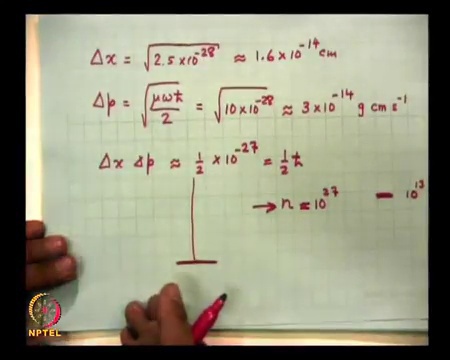 Δx = √2.5×10⁻²⁸ ≈ 1.6×10⁻¹⁴ cm
Δp = √(μωħ/2) = √10×10⁻²⁸ ≈ 3×10⁻¹⁴ g cm s⁻¹
Δx Δp ≈ 1/2 × 10⁻²⁷ = 1/2 ħ
→ n ≈ 10²⁷ − 10¹³
NPTEL